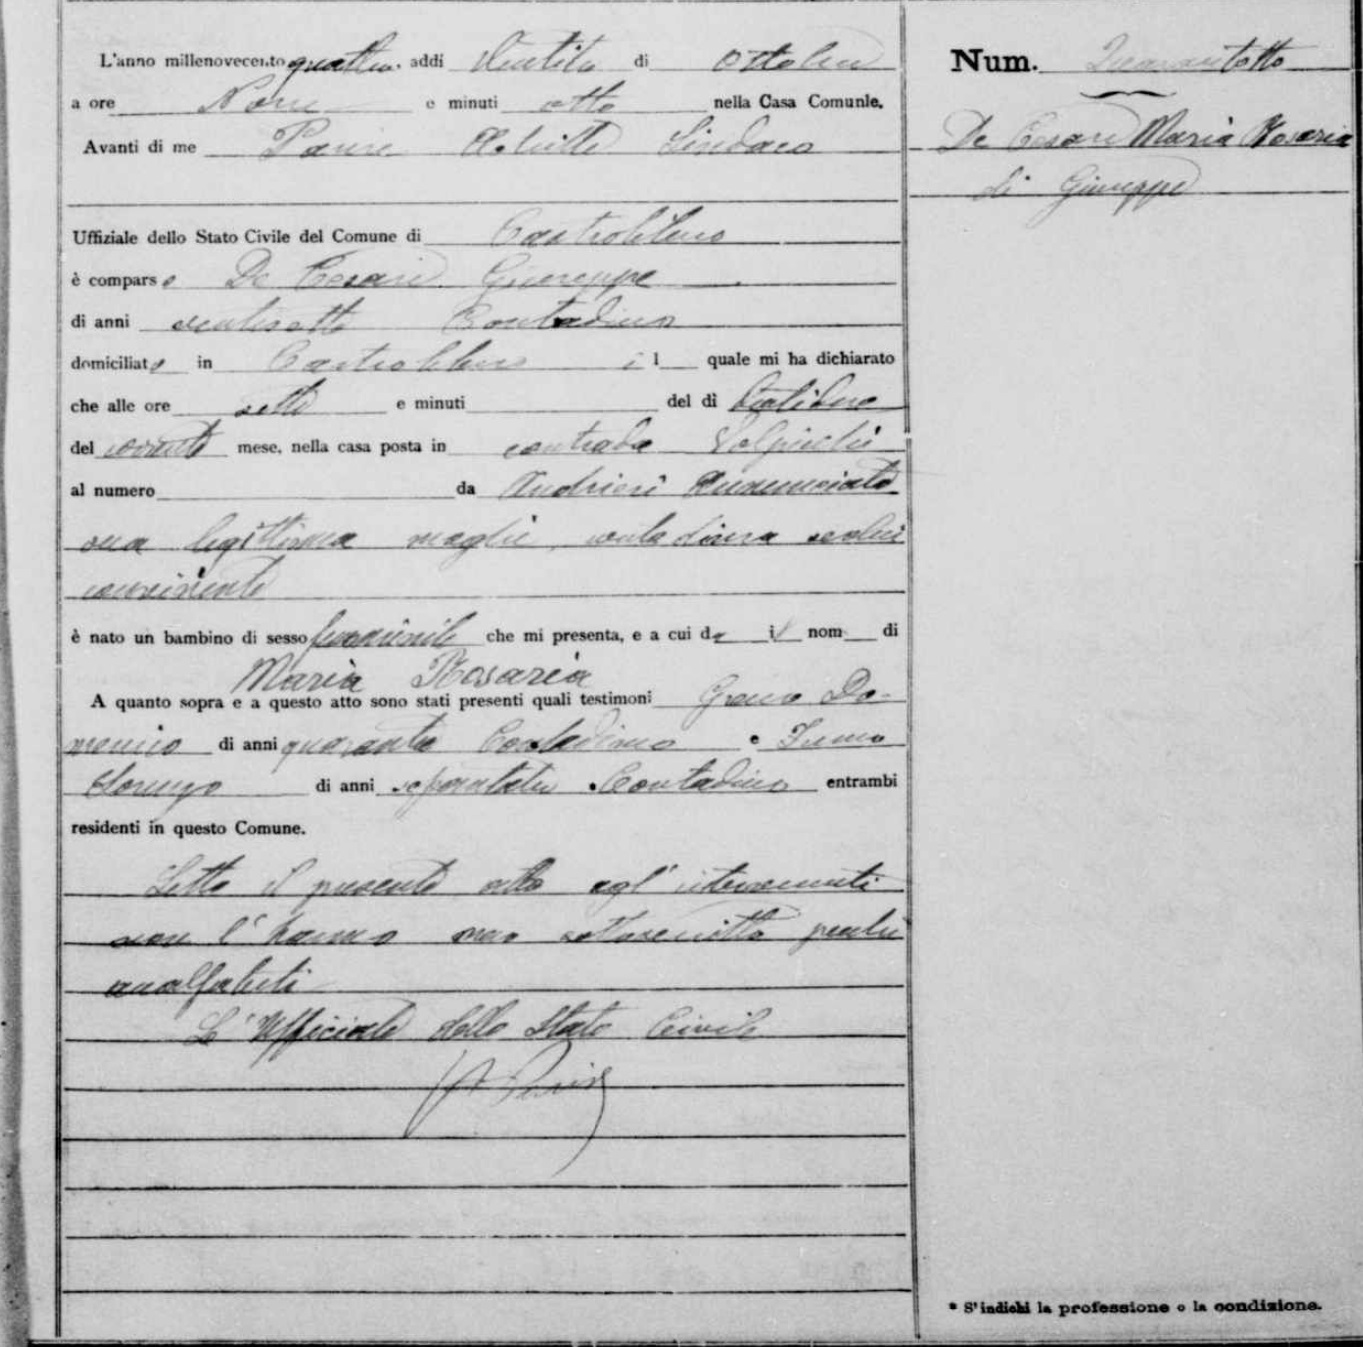 L'anno millenovecento quattro. addì Ventitre di Ottobre
a ore Nove e minuti otto nella Casa Comunle.
Avanti di me Achille Sindaco
Uffiziale dello Stato Civile del Comune di Castrolibero
è comparso De Cesare Giuseppe
di anni ventisette Contadino
domiciliato in Castrolibero il quale mi ha dichiarato
che alle ore sette e minuti del dì
del corrente mese, nella casa posta in contrada
al numero da Andrieri Annunciata
sua legittima moglie, contadina seco lui
convivente
è nato un bambino di sesso femminile che mi presenta, e a cui da il nom di
Maria Rosaria
A quanto sopra e a questo atto sono stati presenti quali testimoni Greco Do-
menico di anni quaranta Contadino e
Lorenzo di anni Contadino entrambi
residenti in questo Comune.
Letto il presente atto agl' intervenuti
non l'hanno sottoscritto perchè
analfabeti
L'Ufficiale dello Stato Civile
Num. Quarantotto
De Cesare Maria Rosaria
di Giuseppe
* S'indichi la professione o la condizione.